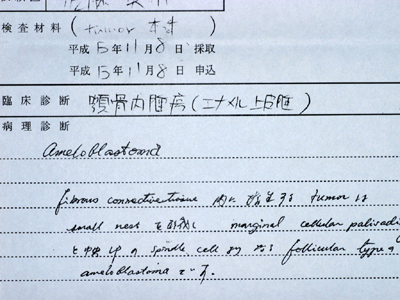 検査材料 ( tumor 材 )
平成 15年 11月 8日 採取
平成 15年 11月 8日 申込
臨床診断 顎骨内腫瘍 (エナメル上皮腫)
病理診断
Ameloblastoma
fibrous connective tissue 内に 増生する tumor は
small nest を形成し marginal cellular palisadi
と中央部の spindle cell からなる follicular type の
ameloblastoma です。